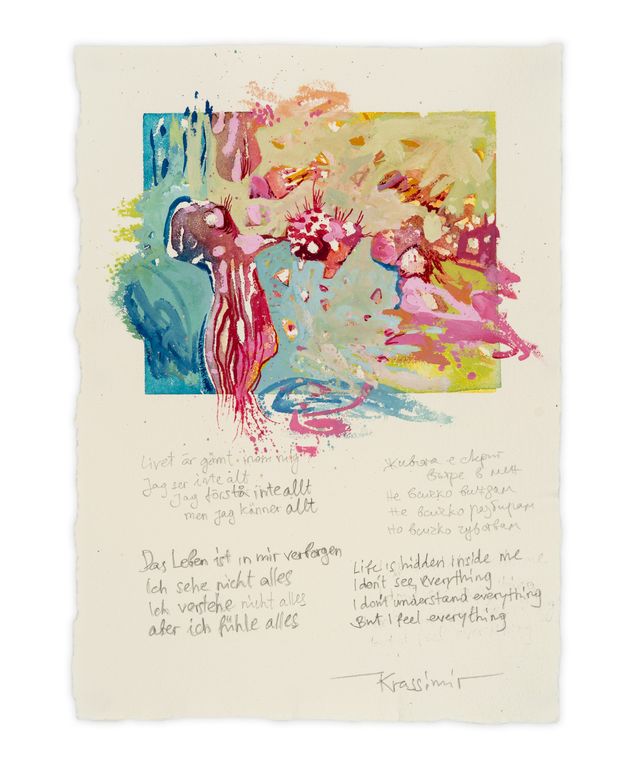 Livet är gömt inom mig
Jag ser inte allt
Jag förstå inte allt
men jag känner allt
Живота е скрит
вътре в мен
Не всичко виждам
Не всичко разбирам
Но всичко чувствам
Das Leben ist in mir verborgen
Ich sehe nicht alles
Ich verstehe nicht alles
aber ich fühle alles
Life is hidden inside me
I don't see everything
I don't understand everything
But I feel everything
Krassimir